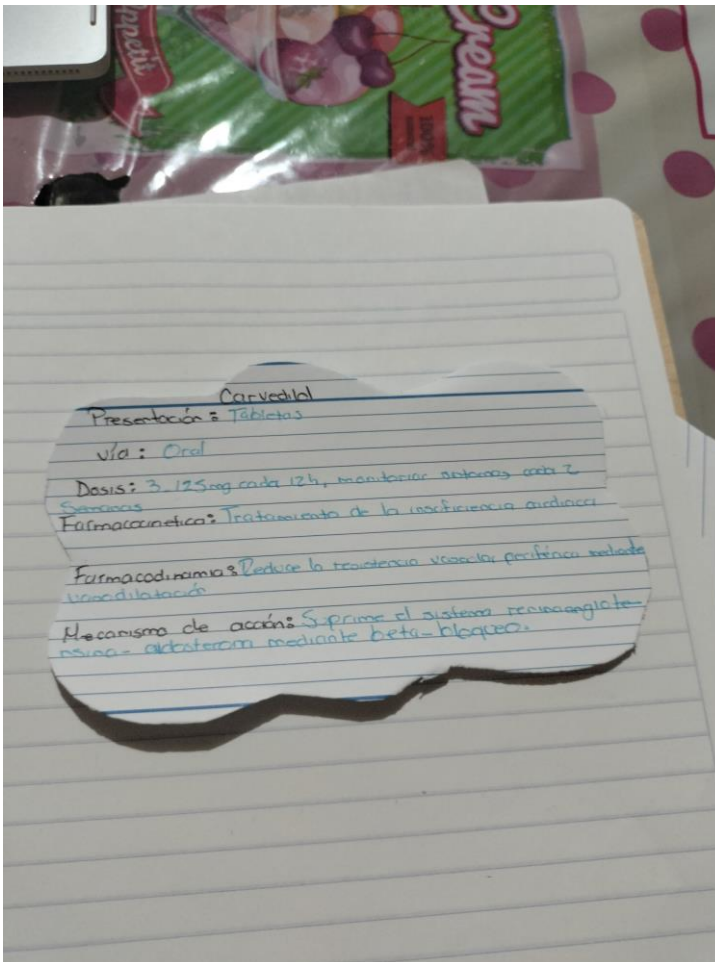 Cream
Appetit
100%
Carvedilol
Presentación: Tabletas
vía: Oral
Dosis: 3.125mg cada 12h, monitoriar sintomas cada 2
Semanas
Farmacocinetica: Tratamiento de la insuficiencia cardiaca
Farmacodinamia: Reduce la resistencia vascular periférica mediante
vasodilatación
Mecanismo de acción: Suprime el sistema reninaangiote-
nsina-aldosterona mediante beta-bloqueo.